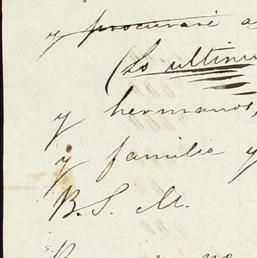 y procuraré a
(Lo ultimo
y hermanos,
y familia y
B. S. M.